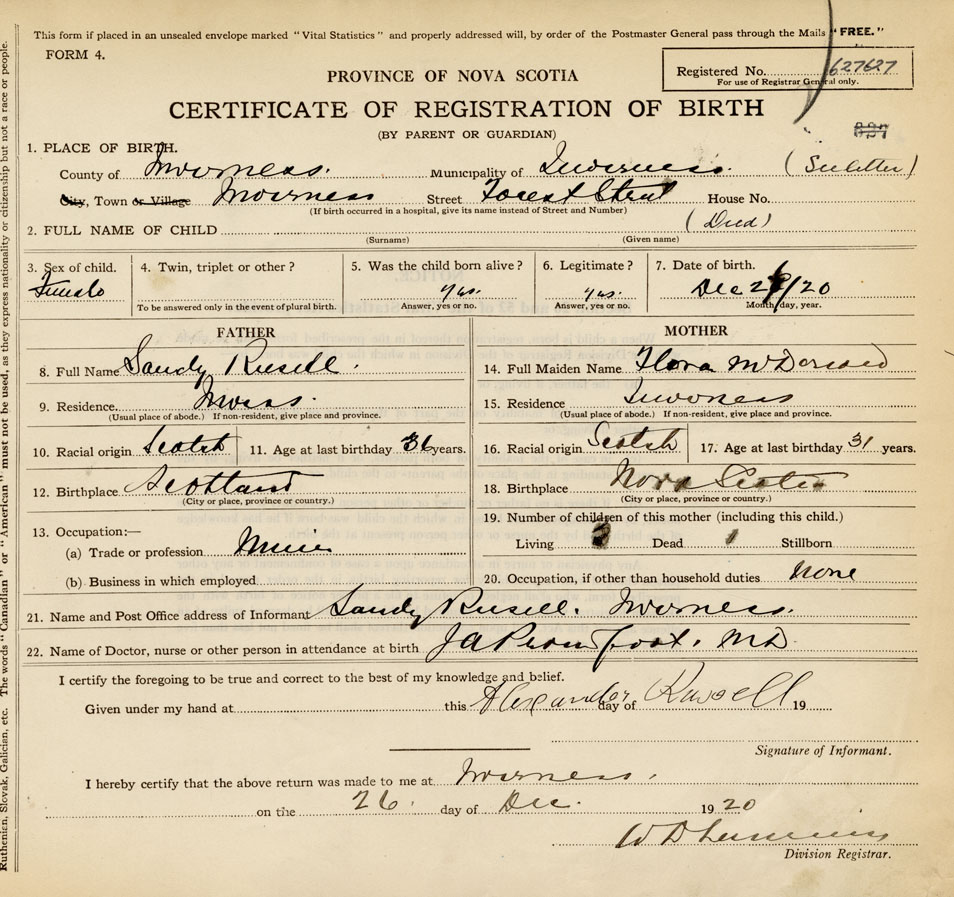 This form if placed in an unsealed envelope marked "Vital Statistics" and properly addressed will, by order of the Postmaster General pass through the Mails "FREE."
FORM 4.
Registered No. 627627
For use of Registrar General only.
PROVINCE OF NOVA SCOTIA
CERTIFICATE OF REGISTRATION OF BIRTH
(BY PARENT OR GUARDIAN)
1. PLACE OF BIRTH.
County of Inverness. Municipality of Inverness. (See letter)
City, Town or Village Inverness Street Forest Street House No.
(If birth occurred in a hospital, give its name instead of Street and Number)
2. FULL NAME OF CHILD (Died)
(Surname) (Given name)
3. Sex of child. 4. Twin, triplet or other? 5. Was the child born alive? 6. Legitimate? 7. Date of birth.
Female yes. yes. Dec 2 /20
To be answered only in the event of plural birth. Answer, yes or no. Answer, yes or no. Month, day, year.
FATHER MOTHER
8. Full Name Sandy Russell. 14. Full Maiden Name Flora
9. Residence. Inverness. 15. Residence Inverness
(Usual place of abode.) If non-resident, give place and province. (Usual place of abode.) If non-resident, give place and province.
10. Racial origin Scotch 11. Age at last birthday 36 years. 16. Racial origin Scotch 17. Age at last birthday 31 years.
12. Birthplace Scotland 18. Birthplace Nova Scotia
(City or place, province or country.) (City or place, province or country.)
19. Number of children of this mother (including this child.)
13. Occupation:—
(a) Trade or profession Miner Living Dead 1 Stillborn
(b) Business in which employed 20. Occupation, if other than household duties None
21. Name and Post Office address of Informant Sandy Russell. Inverness.
22. Name of Doctor, nurse or other person in attendance at birth J A Proudfoot. MD
I certify the foregoing to be true and correct to the best of my knowledge and belief.
Given under my hand at this Alexander day of Russell 19
Signature of Informant.
I hereby certify that the above return was made to me at Inverness.
on the 26. day of Dec. 1920
W D
Division Registrar.
Ruthenien, Slovak, Galician, etc. The words "Canadian" or "American" must not be used, as they express nationality or citizenship but not a race or people.